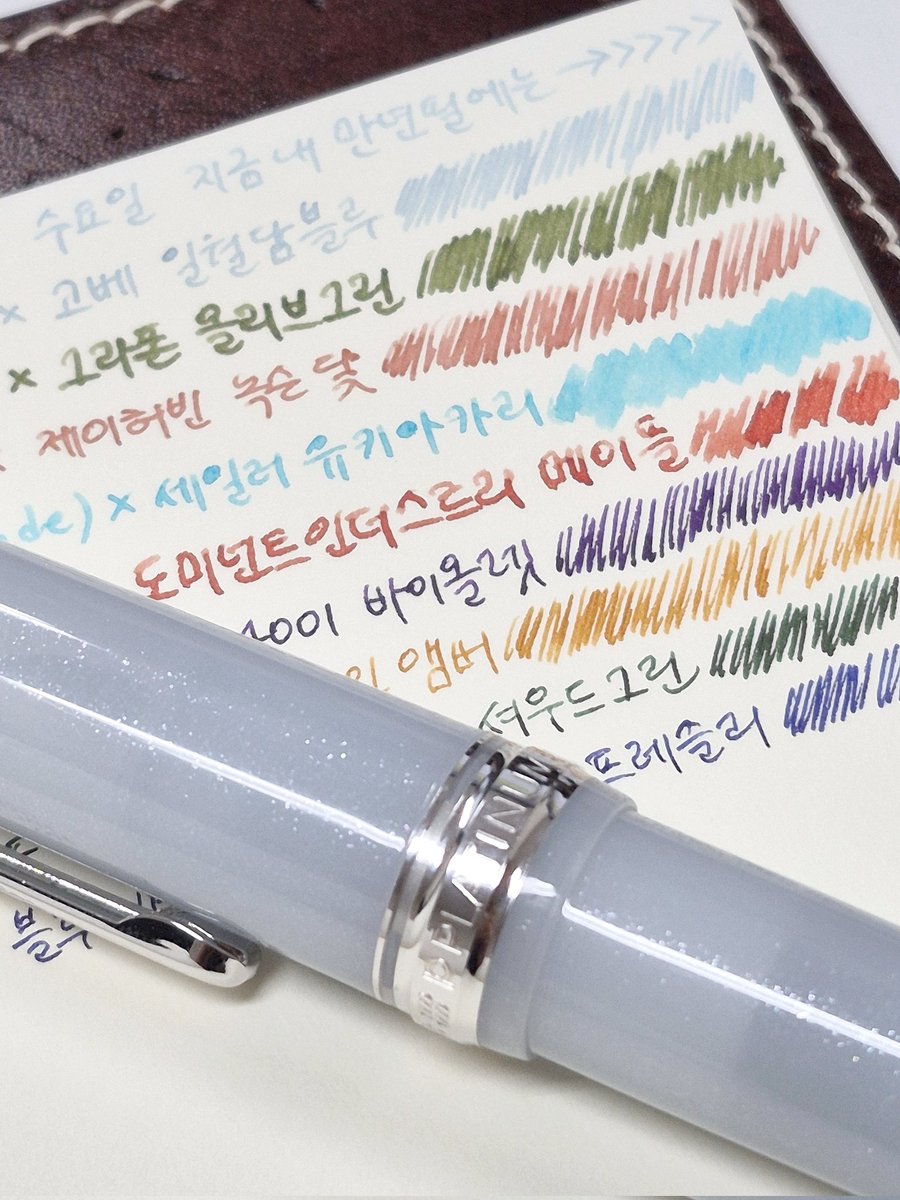 수요일 지금 내 만년필에는 →>>>>
× 고베 일월담블루
× 그라폰 올리브그린
제이허빈 녹슨닻
de) × 세일러 유키아카리
도미넌트인더스트리 메이플
바이올렛
앰버
셔우드그린
프레슬리
PLATINUM
블루